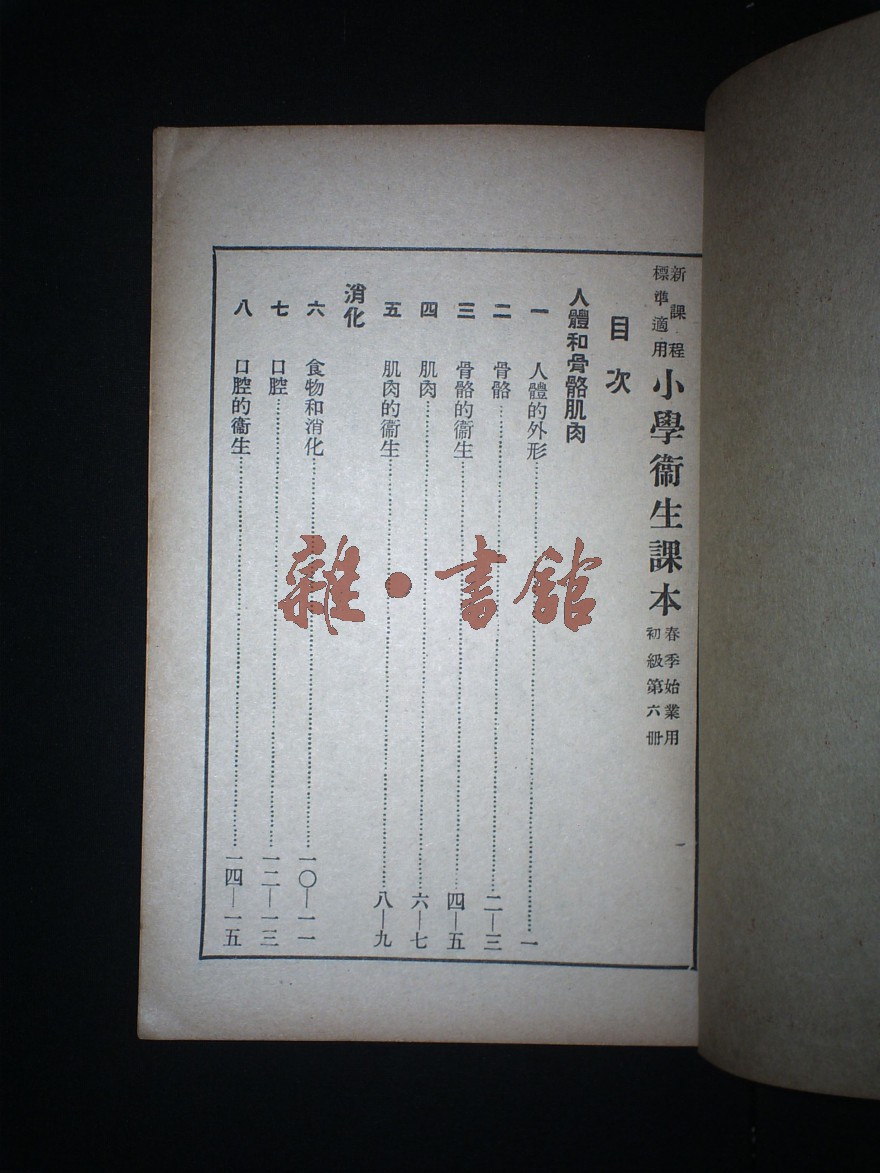 新課程
標準適用
小學衞生課本
春季始業用
初級第六冊
目次
人體和骨骼肌肉
一 人體的外形……一
二 骨骼……二—三
三 骨骼的衞生……四—五
四 肌肉……六—七
五 肌肉的衞生……八—九
消化
六 食物和消化……一〇—一一
七 口腔……一二—一三
八 口腔的衞生……一四—一五
雜·書館